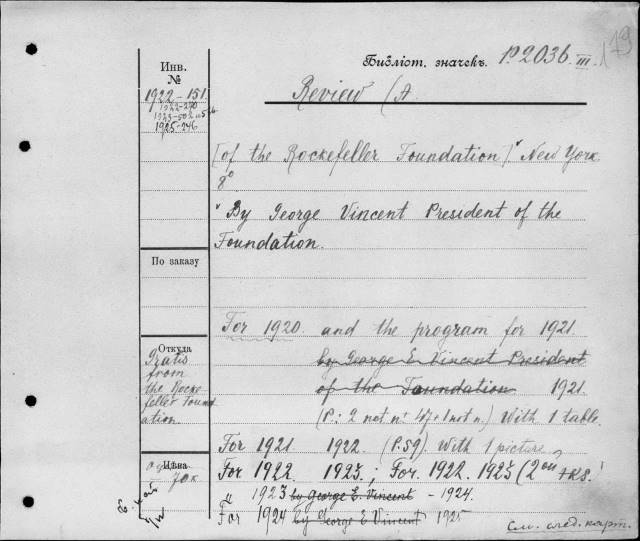 Библіот. значекъ. P2036 III
19
Инв.
№
1922-151
1922-270
1925-246
Review (A
[of the Rockefeller Foundation]" New York
8°
"By George Vincent President of the
Foundation.
По заказу
For 1920. and the program for 1921.
by George E. Vincent President
of the Foundation 1921.
(P.: 2 not n + 47 + 1 not n.) With 1 table.
Откуда
Gratis
from
the Rocke-
feller Found
ation
For 1921 1922. (P. 59). With 1 picture
Цѣна
For 1922. 1923.; For. 1922. 1923 (2
" 1923 by George E. Vincent - 1924.
For 1924 by George E. Vincent 1925
См. след. карт.